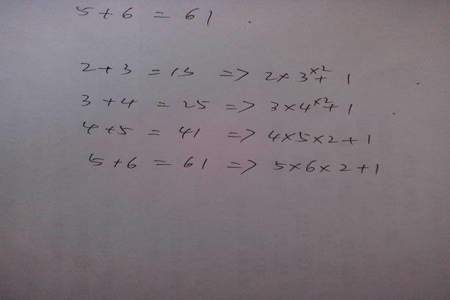 5 + 6 = 61 .
2 + 3 = 13 => 2 x 3 x2 + 1
3 + 4 = 25 => 3 x 4 x2 + 1
4 + 5 = 41 => 4 x 5 x 2 + 1
5 + 6 = 61 => 5 x 6 x 2 + 1